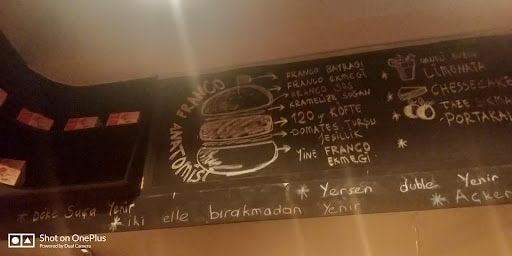 FRANCO BAYRAĞI
FRANCO EKMEĞİ
FRANCO SOS
KARAMELİZE SOĞAN
120 g KÖFTE
DOMATES, TURŞU
YEŞİLLİK
YİNE FRANCO
EKMEĞİ
FRANCO
LİMONATA
CHESSECAKE
TAZE
PORTAKAL
* Yersen duble Yenir
* Döke Saça Yenir
* iki elle bırakmadan Yenir
Shot on OnePlus
Powered by Dual Camera